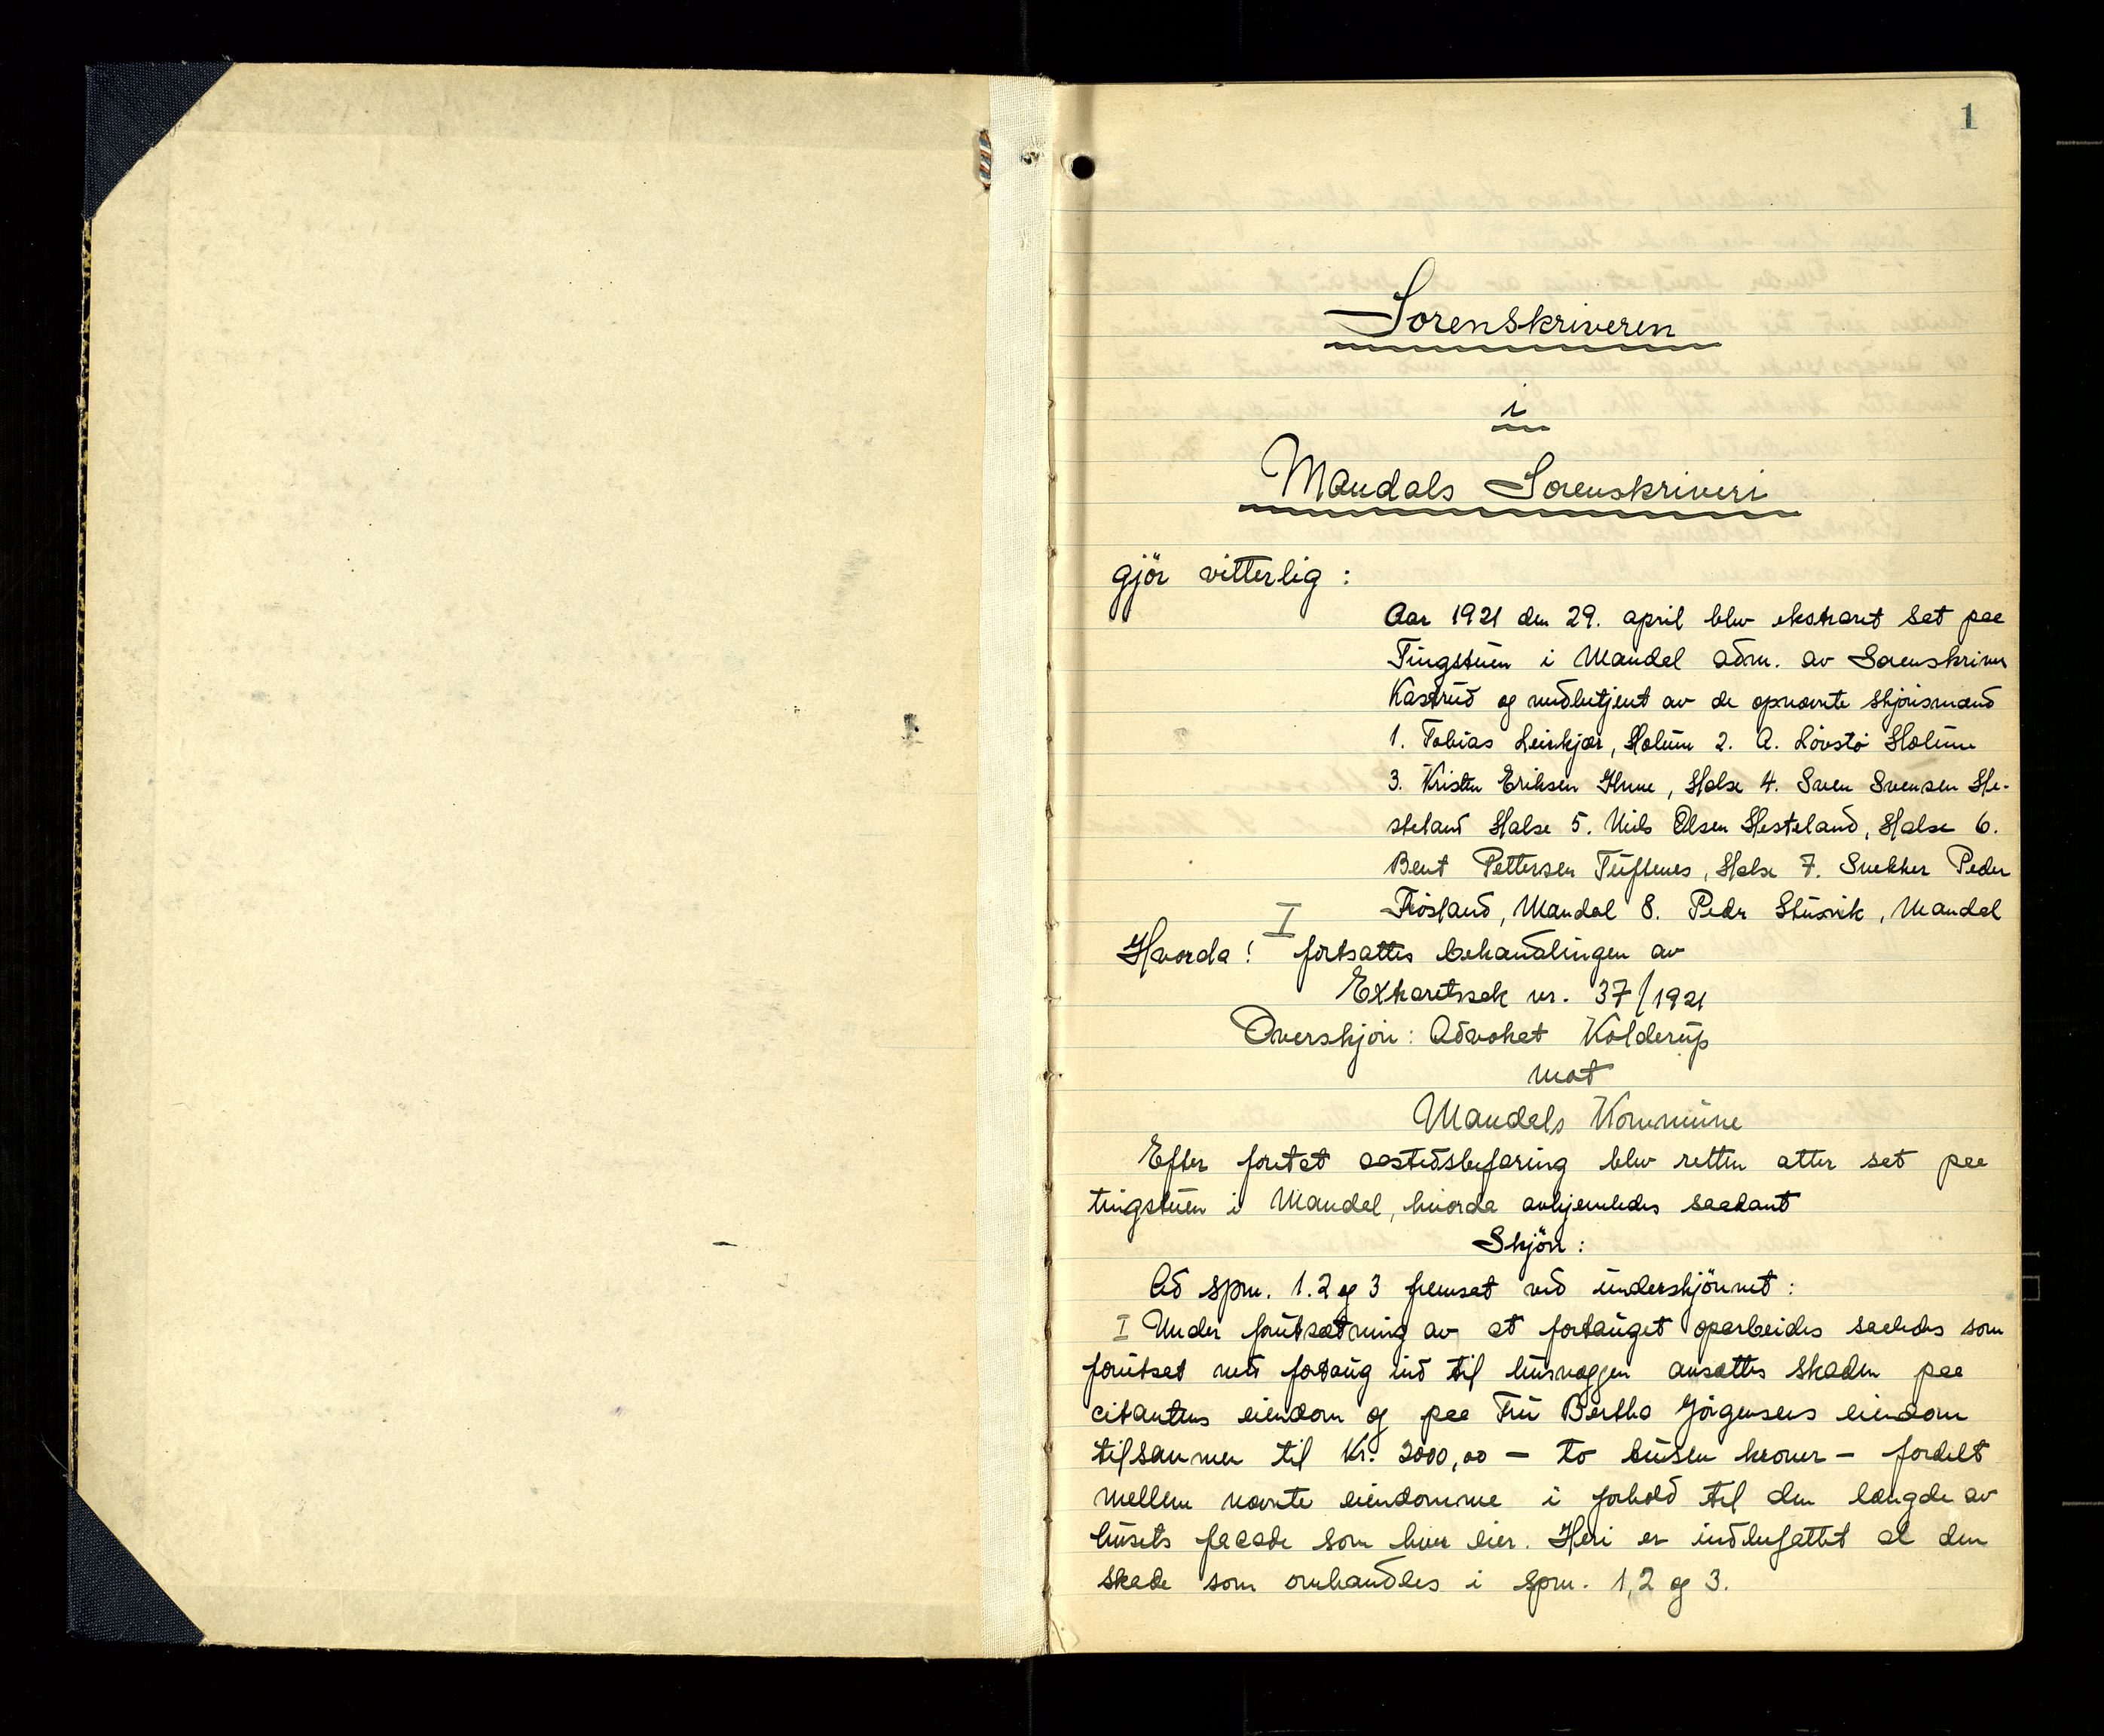 1
Sorenskriveren
i
Mandals Sorenskriveri
gjör vitterlig :
Aar 1921 den 29. april blev ekstraret sat paa
Tingstuen i Mandal adm. av Sorenskriver
Kastrud og medbetjent av de opnævnte skjönsmænd
1. Tobias Leirkjær, Holum 2. A. Lövstö Holum
3. Kristen Eriksen Ihme, Halse 4. Sven Svensen He-
steland Halse 5. Niels Olsen Hesteland, Halse 6.
Bent Pettersen Tuftenes, Halse 7. Snekker Peder
Frösland, Mandal 8. Peder Stusvik, Mandal
I
Hvorda ! fortsattes behandlingen av
Extraretssak nr. 37/1921
Overskjön : Advokat Kolderup
mot
Mandals Kommune
Efter foretat aastedsbefaring blev retten atter sat paa
tingstuen i Mandal, hvorda avhjemledes saadant
Skjön :
Ad spm. 1.2 og 3 fremsat ved underskjönnet :
I Under forutsætning av at fortauget oparbeides saaledes som
forutsat med fortaug ind til husvæggen ansættes skaden paa
citantens eiendom og paa Fru Bertha Jörgensens eiendom
tilsammen til Kr. 2000,00 — to tusen kroner — fordelt
mellem nævnte eiendomme i forhold til den længde av
husets facade som hver eier. Heri er indbefattet al den
skade som omhandles i spm. 1,2 og 3.